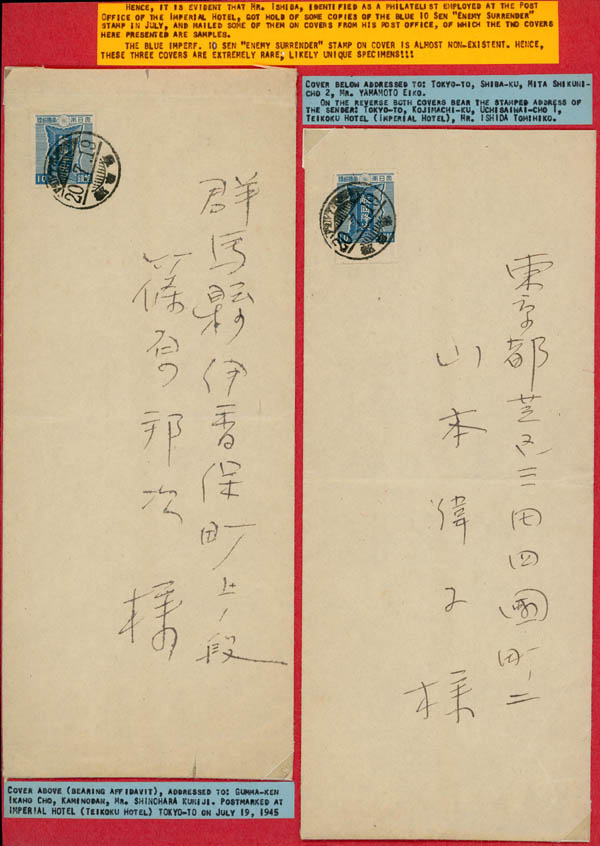 HENCE, IT IS EVIDENT THAT MR. ISHIDA, IDENTIFIED AS A PHILATELIST EMPLOYED AT THE POST
OFFICE OF THE IMPERIAL HOTEL, GOT HOLD OF SOME COPIES OF THE BLUE 10 SEN "ENEMY SURRENDER"
STAMP IN JULY, AND MAILED SOME OF THEM ON COVERS FROM HIS POST OFFICE, OF WHICH THE TWO COVERS
HERE PRESENTED ARE SAMPLES.
THE BLUE IMPERF. 10 SEN "ENEMY SURRENDER" STAMP ON COVER IS ALMOST NON-EXISTENT. HENCE,
THESE THREE COVERS ARE EXTREMELY RARE, LIKELY UNIQUE SPECIMENS!!!
COVER BELOW ADDRESSED TO: TOKYO-TO, SHIBA-KU, MITA SHIKUNI-
CHO 2, MR. YAMAMOTO EIKO.
ON THE REVERSE BOTH COVERS BEAR THE STAMPED ADDRESS OF
THE SENDER: TOKYO-TO, KOJIMACHI-KU, UCHISAIHAI-CHO 1,
TEIKOKU HOTEL (IMPERIAL HOTEL), MR. ISHIDA TOMIHIKO.
20.7.19
群馬縣伊香保町上ノ段
篠原邦次
様
東京都芝区三田四國町二
山本偉子
様
COVER ABOVE (BEARING AFFIDAVIT), ADDRESSED TO: GUMMA-KEN
IKAHO CHO, KAMINODAN, MR. SHINOHARA KUNIJI. POSTMARKED AT
IMPERIAL HOTEL (TEIKOKU HOTEL) TOKYO-TO ON JULY 19, 1945